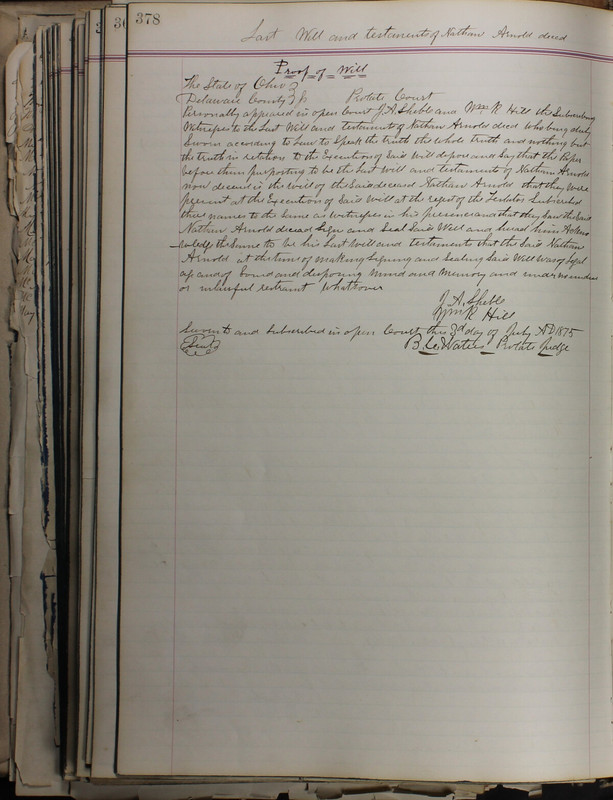 378
Last Will and testament of Nathan Arnold decd
Proof of Will
The State of Ohio
Delaware County ss Probate Court
Personally appeared in open Court J. A. Sheble and Wm R Hill the Subscribing
Witnesses to the Last Will and testament of Nathan Arnold decd who being duly
Sworn according to Law to Speak the truth the whole truth and nothing but
the truth in relation to the Execution of Said Will depose and Say that the Paper
before them purporting to be the last Will and testament of Nathan Arnold
now deceased is the will of the Said deceased Nathan Arnold that they were
present at the Execution of Said Will at the request of the Testator Subscribed
their names to the Same as Witnesses in his presence and that they Saw the Said
Nathan Arnold deceased Sign and Seal Said Will and heard him Acknow
ledge the Same to be his Last Will and testament that the Said Nathan
Arnold at the time of making Signing and Sealing Said Will was of Legal
age and of Sound and disposing mind and Memory and under no undue
or unlawful restraint whatsoever
J. A. Sheble
Wm R Hill
Sworn to and Subscribed in open Court this 3d day of July AD 1875
Seal B. C. Waters Probate Judge